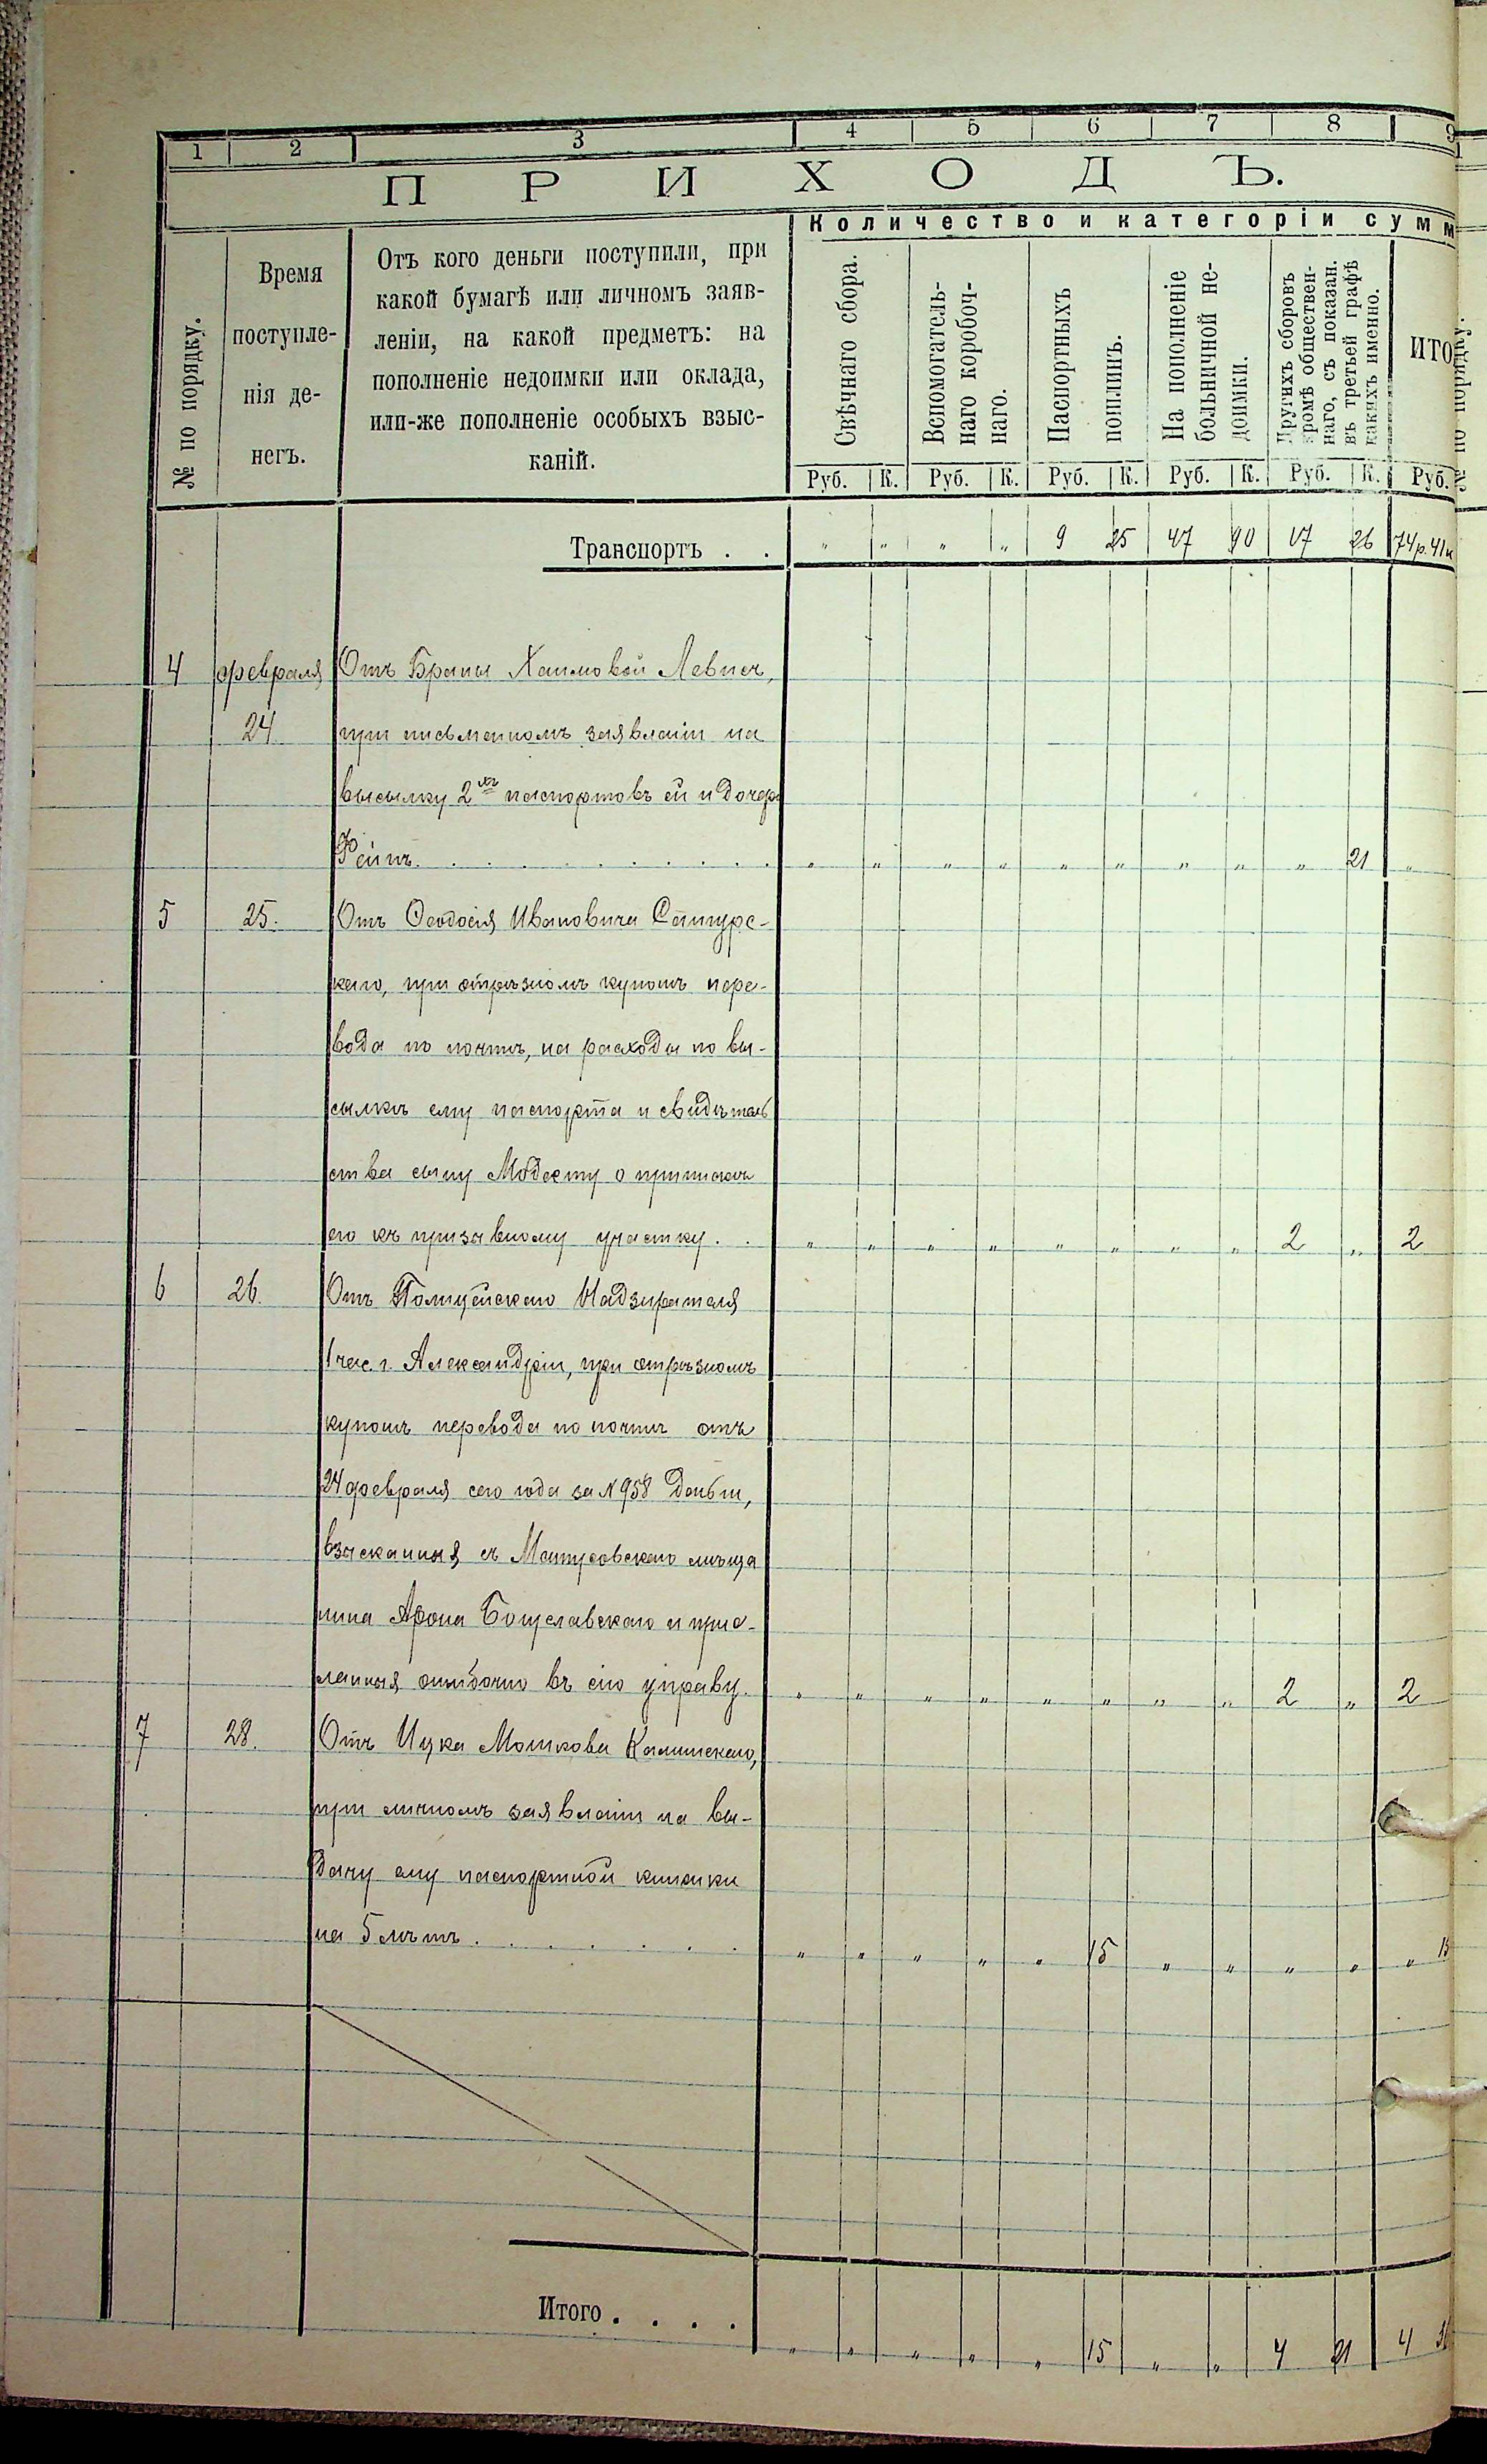 1 2 3 4 5 6 7 8 9
ПРИХОДЪ.
Количество и категоріи сумм
№ по порядку.
Время
поступле-
нія де-
негъ.
Отъ кого деньги поступили, при
какой бумагѣ или личномъ заяв-
леніи, на какой предметъ: на
пополненіе недоимки или оклада,
или-же пополненіе особыхъ взыс-
каній.
Свѣчнаго сбора.
Вспомогатель-
наго коробоч-
наго.
Паспортныхъ
пошлинъ.
На пополненіе
больничной не-
доимки.
Другихъ сборовъ
кромѣ обществен-
наго, съ показан.
въ третьей графѣ
какихъ именно.
ИТО
№ по порядку.
Руб. К. Руб. К. Руб. К. Руб. К. Руб. К. Руб.
Транспортъ . . " " " " 9 25 47 90 17 26 74р.41к
4 февраля Отъ Браны Хаимовой Левич,
24 при письменномъ заявленіи на
высылку 2хъ паспортовъ ей и дочери
Фейгѣ . . . . . . . . . " " " " " " " " " 21 "
5 25. Отъ Ѳеодосія Ивановича
каго, при отрѣзномъ купонѣ пере-
вода по почтѣ, на расходы по вы-
сылкѣ ему паспорта и свидѣтель
ства сыну Модесту о припискѣ
его къ призывному участку . . " " " " " " " " 2 " 2
6 26. Отъ Полицейскаго Надзирателя
1 час. г. Александріи, при отрѣзномъ
купонѣ перевода по почтѣ отъ
24 февраля сего года за №958 деньги,
взысканныя съ мѣща
нина Арона Богуславскаго и прис-
ланныя ошибочно въ сію управу. " " " " " " " " 2 " 2
7 28. Отъ Ицка Мошкова Калинскаго,
при личномъ заявленіи на вы-
дачу ему паспортной книжки
на 5 лѣтъ . . . . . . " " " " " 15 " " " " " 15
Итого . . . . " " " " " 15 " " 4 21 4 36